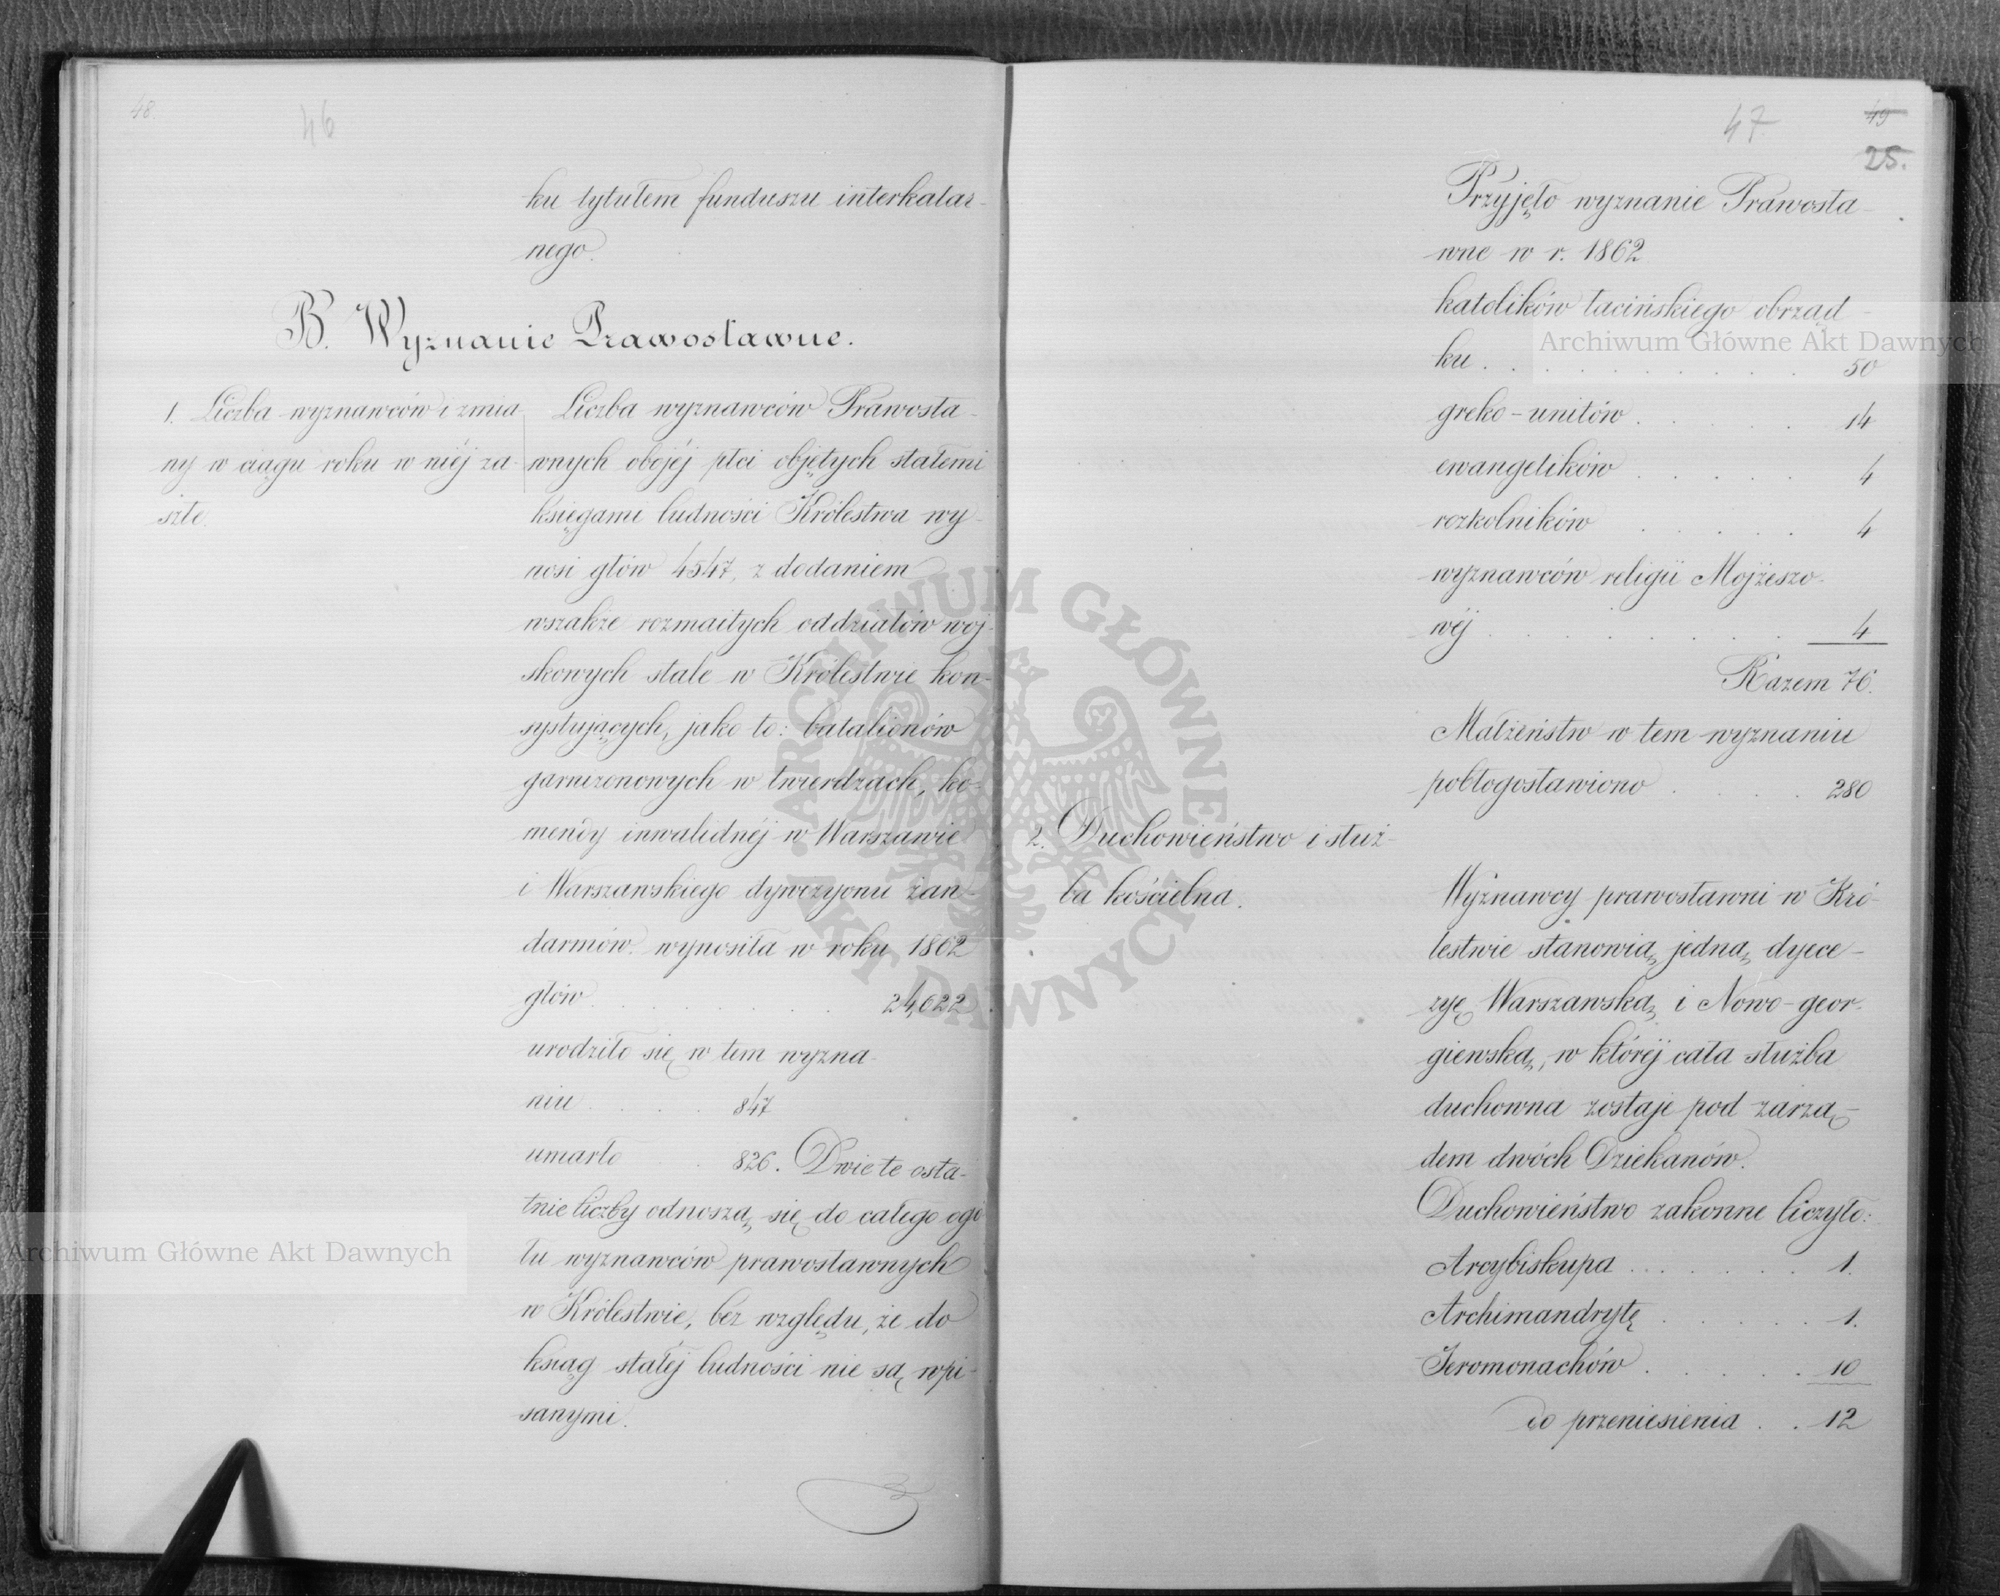 48.
46
ku tytułem funduszu interkalar-
nego.
B. Wyznanie Prawosławne.
1. Liczba wyznawców i zmia
ny w ciągu roku w niéj za-
szłe.
Liczba wyznawców Prawosła-
wnych obojéj płci objętych stałemi
księgami ludności Królestwa wy-
nosi głów 4547, z dodaniem
wszakże rozmaitych oddziałów woj-
skowych stale w Królestwie kon-
systujących, jako to: batalionów
garnizonowych w twierdzach, ko-
mendy inwalidnéj w Warszawie
i Warszawskiego dywizyonu żan-
darmów wynosiła w roku 1862
głów . . . . . . 24,622
urodziło się w tem wyzna-
niu . . . . 847
umarło . . 826. Dwie te osta-
tnie liczby odnoszą się do całego ogó
łu wyznawców prawosławnych
w Królestwie, bez względu, że do
ksiąg stałéj ludności nie są wpi-
sanymi.
47
49
25.
Przyjęło wyznanie Prawosła-
wne w r. 1862
katolików łacińskiego obrząd-
ku . . . . . . . . 50
greko-unitów . . . . . 14
ewangelików . . . . . 4
rozkolników . . . . 4
wyznawców religii Mojżeszo-
wéj . . . . . . . . 4
Razem 76.
Małżeństw w tem wyznaniu
pobłogosławiono . . . . 280
2. Duchowieństwo i służ-
ba kościelna.
Wyznawcy prawosławni w Kró-
lestwie stanowią jedną dyece-
zyę Warszawską i Nowo-geor-
giewską, w któréj cała służba
duchowna zostaje pod zarzą-
dem dwóch Dziekanów.
Duchowieństwo zakonne liczyło:
Arcybiskupa . . . . . . 1.
Archimandrytę . . . . . 1.
Jeromonachów . . . . . 10
do przeniesienia . . 12
ARCHIWUM GŁÓWNE
AKT DAWNYCH
Archiwum Główne Akt Dawnych
Archiwum Główne Akt Dawnych